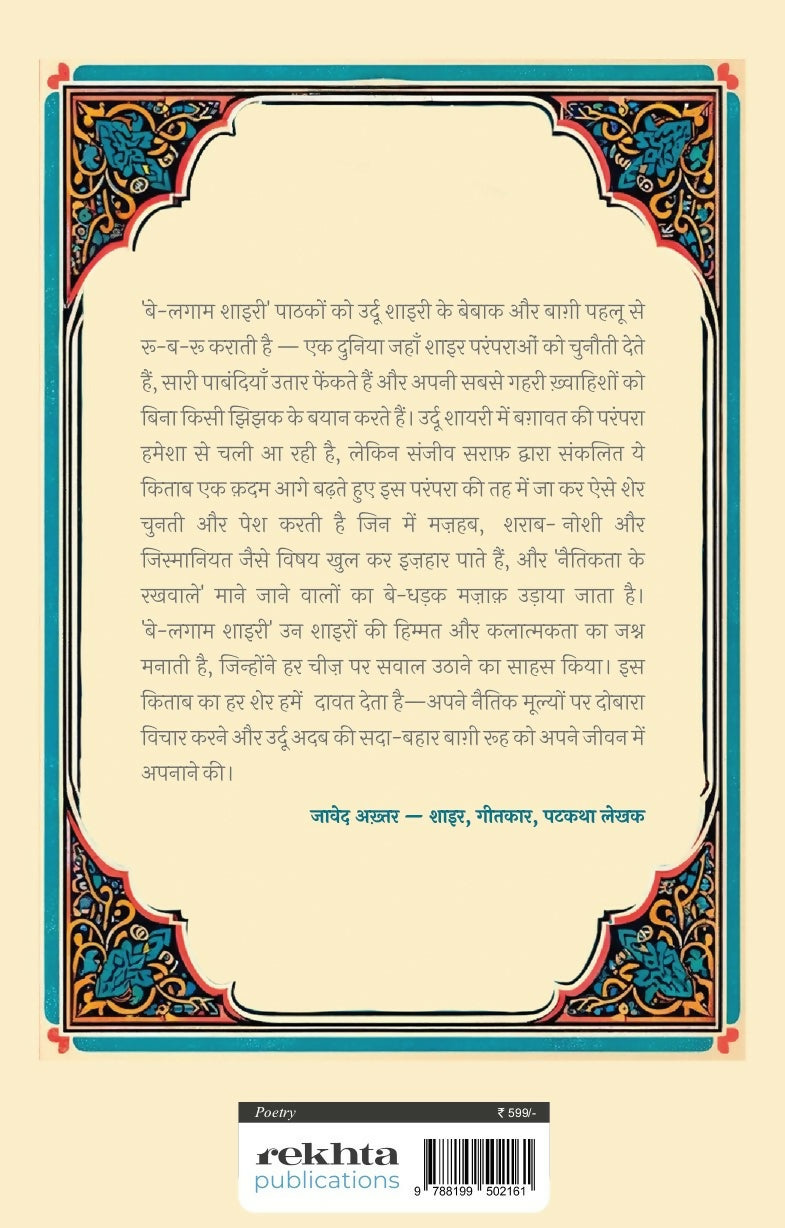 'बे-लगाम शाइरी' पाठकों को उर्दू शाइरी के बेबाक और बाग़ी पहलू से
रू-ब-रू कराती है — एक दुनिया जहाँ शाइर परंपराओं को चुनौती देते
हैं, सारी पाबंदियाँ उतार फेंकते हैं और अपनी सबसे गहरी ख़्वाहिशों को
बिना किसी झिझक के बयान करते हैं। उर्दू शायरी में बग़ावत की परंपरा
हमेशा से चली आ रही है, लेकिन संजीव सराफ़ द्वारा संकलित ये
किताब एक क़दम आगे बढ़ते हुए इस परंपरा की तह में जा कर ऐसे शेर
चुनती और पेश करती है जिन में मज़हब, शराब- नोशी और
जिस्मानियत जैसे विषय खुल कर इज़हार पाते हैं, और 'नैतिकता के
रखवाले' माने जाने वालों का बे-धड़क मज़ाक़ उड़ाया जाता है।
'बे-लगाम शाइरी' उन शाइरों की हिम्मत और कलात्मकता का जश्न
मनाती है, जिन्होंने हर चीज़ पर सवाल उठाने का साहस किया। इस
किताब का हर शेर हमें दावत देता है—अपने नैतिक मूल्यों पर दोबारा
विचार करने और उर्दू अदब की सदा-बहार बाग़ी रूह को अपने जीवन में
अपनाने की।
जावेद अख़्तर — शाइर, गीतकार, पटकथा लेखक
Poetry ₹ 599/-
rekhta
publications
9 788199 502161